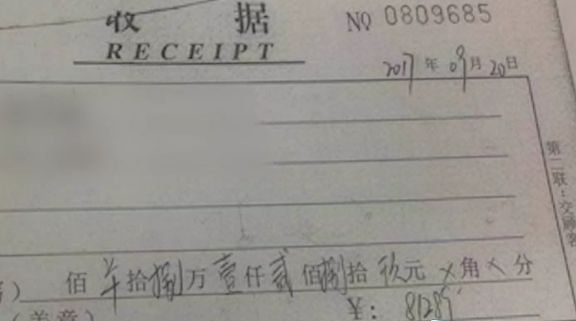 收 据
RECEIPT
№ 0809685
2017 年 09 月 20 日
第二联:交顾客
) 佰 ¥ 拾 捌 万 壹 仟 贰 佰 捌 拾 玖 元 X 角 X 分
(盖章) ¥: 81289